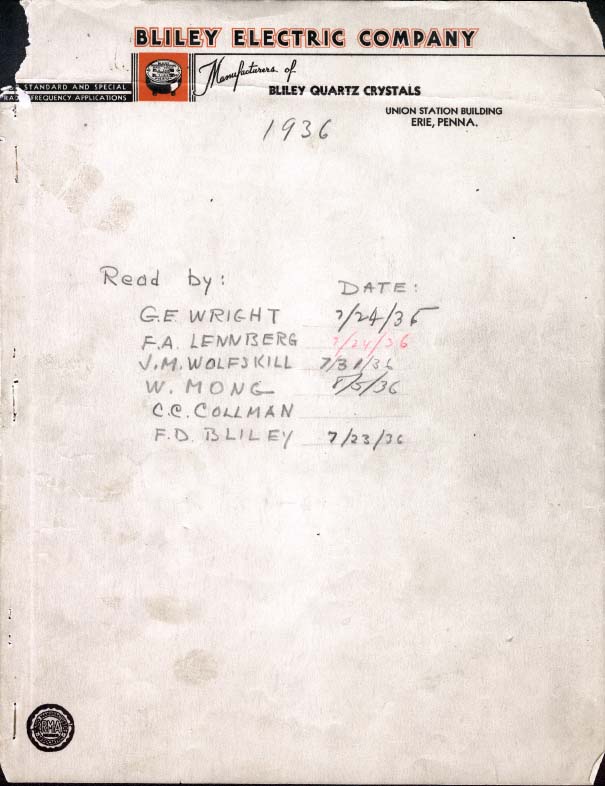 BLILEY ELECTRIC COMPANY
Manufacturers of
BLILEY QUARTZ CRYSTALS
STANDARD AND SPECIAL
FREQUENCY APPLICATIONS
UNION STATION BUILDING
ERIE, PENNA.
1936
Read by: DATE:
G.E. WRIGHT 7/24/36
F.A. LENNBERG 7/24/36
J.M. WOLFSKILL 7/31/36
W. MONG 8/5/36
C.C. COLLMAN
F.D. BLILEY 7/23/36
RMA